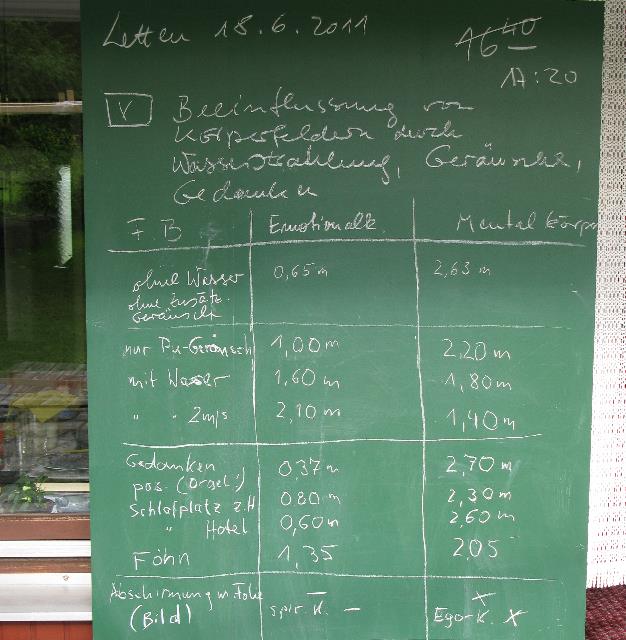 Letten 18.6.2011
16 40
17:20
V Beeinflussung von
Körperfeldern durch
Wasserstrahlung, Geräusche,
Gedanken
F B Emotionalk. Mental körper
ohne Wasser 0,65 m 2,63 m
ohne zusätz.
Geräusch
nur Pu-Geräusch 1,00 m 2,20 m
mit Wasser 1,60 m 1,80 m
" " 2m/s 2,10 m 1,40 m
Gedanken 0,37 m 2,70 m
pos. (Orgel)
Schlafplatz z.H 0,80 m 2,30 m
" Hotel 0,60 m 2,60 m
Föhn 1,35 2,05
Abschirmung m. Folie
(Bild) spir. K. – Ego-K. X